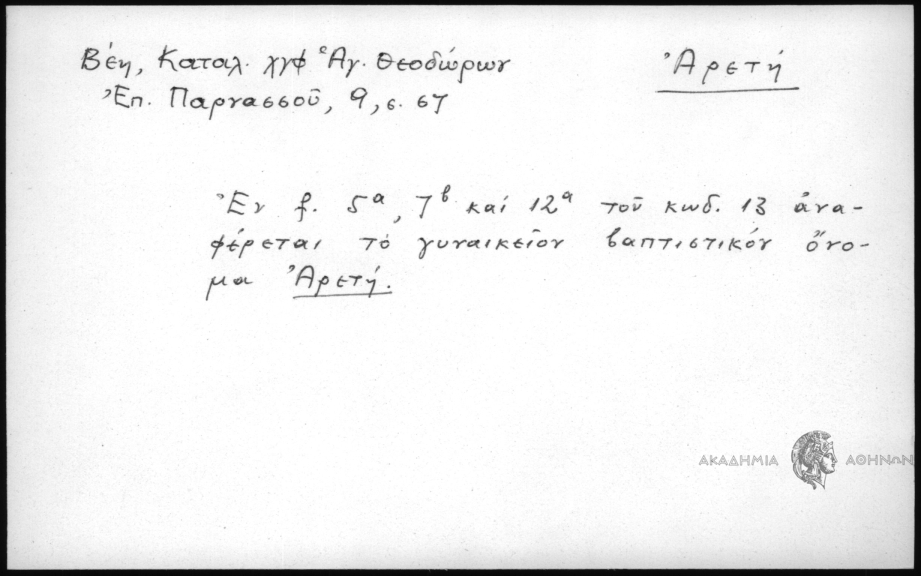 Βέη, Καταλ. χγφ Ἁγ. Θεοδώρων
Ἀρετή
Ἐπ. Παρνασσοῦ, 9, σ. 67
Ἐν f. 5α, 7b καί 12α τοῦ κωδ. 13 ἀνα-
φέρεται τὸ γυναικεῖον βαπτιστικόν ὄνο-
μα Ἀρετή.
ΑΚΑΔΗΜΙΑ ΑΘΗΝΩΝ